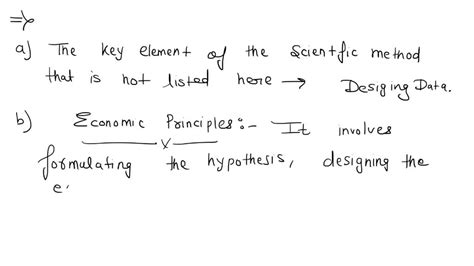 =>
a) The key element of the Scientfic method
that is not listed here → Desiging Data.
b) Economic Principles:- It involves
formulating the hypothesis, designing the
e